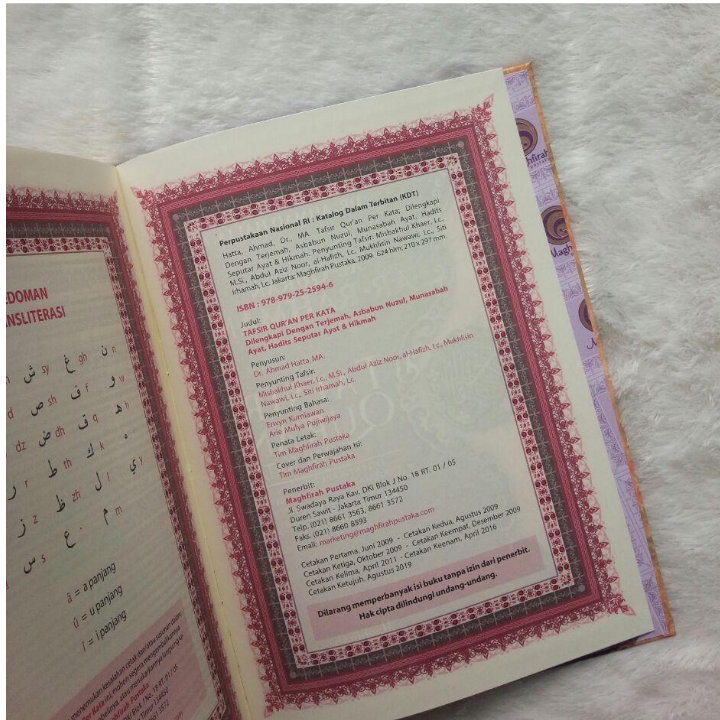 EDOMAN
NSLITERASI
ش sy غ gh ن n
ص sh ف f و w
dz ض dh ق q ه h
ر r ط th ك k ء '
ز z ظ zh ل l ي y
س s ع ' م m
â = a panjang
û = u panjang
î = i panjang
Perpustakaan Nasional RI : Katalog Dalam Terbitan (KDT)
Hatta, Ahmad, Dr., MA. Tafsir Qur'an Per Kata, Dilengkapi
Dengan Terjemah, Asbabun Nuzul, Munasabah Ayat, Hadits
Seputar Ayat & Hikmah. Penyunting Tafsir: Misbahul Khaer, Lc.
M.Si., Abdul Aziz Noor, al-Hafizh, Lc. Mukhlisin Nawawi, Lc., Siti
Irhamah, Lc. Jakarta: Maghfirah Pustaka, 2009. 624 hlm, 210 x 297 mm
ISBN : 978-979-25-2594-6
Judul:
TAFSIR QUR'AN PER KATA
Dilengkapi Dengan Terjemah, Asbabun Nuzul, Munasabah
Ayat, Hadits Seputar Ayat & Hikmah
Penyusun:
Dr. Ahmad Hatta, MA.
Penyunting Tafsir:
Misbahul Khaer, Lc., M.Si., Abdul Aziz Noor, al-Hafizh, Lc., Mukhlisin
Nawawi, Lc., Siti Irhamah, Lc
Penyunting Bahasa:
Erwyn Kurniawan
Arie Mulya Pujiwijaya
Penata Letak:
Tim Maghfirah Pustaka
Cover dan Perwajahan Isi:
Tim Maghfirah Pustaka
Penerbit:
Maghfirah Pustaka
Jl. Swadaya Raya Kav. DKI Blok J No. 18 RT. 01 / 05
Duren Sawit - Jakarta Timur 134450
Telp. (021) 8661 3563, 8661 3572
Faks. (021) 8660 8593
Email: marketing@maghfirahpustaka.com
Cetakan Pertama, Juni 2009 - Cetakan Kedua, Agustus 2009
Cetakan Ketiga, Oktober 2009 - Cetakan Keempat, Desember 2009
Cetakan Kelima, April 2011 - Cetakan Keenam, April 2016
Cetakan Ketujuh, Agustus 2019
Dilarang memperbanyak isi buku tanpa izin dari penerbit.
Hak cipta dilindungi undang-undang.